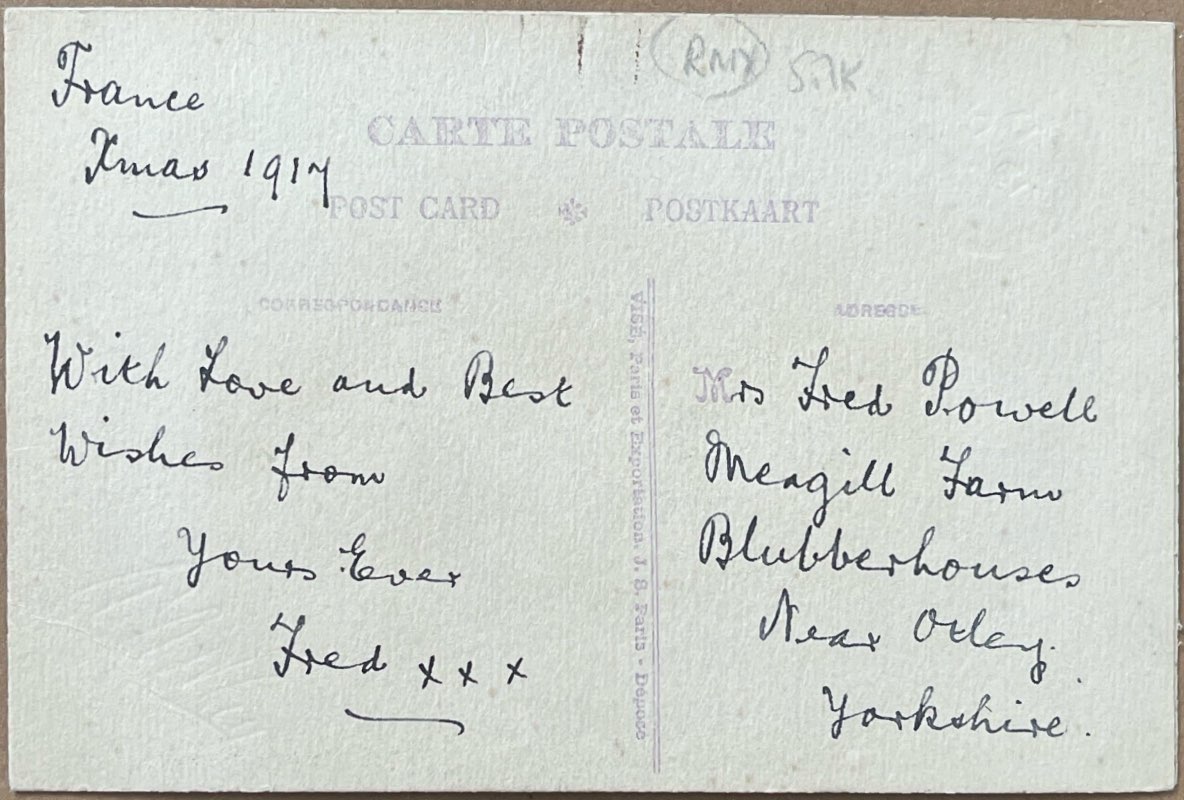 France
Xmas 1917
RMX SILK
CARTE POSTALE
POST CARD POSTKAART
CORRESPONDANCE
With Love and Best
Wishes from
Yours Ever
Fred x x x
VISÉ, Paris et Exportation. J. S. Paris - Déposé
ADRESSE
Mrs Fred Powell
Meagill Farm
Blubberhouses
Near Otley.
Yorkshire.